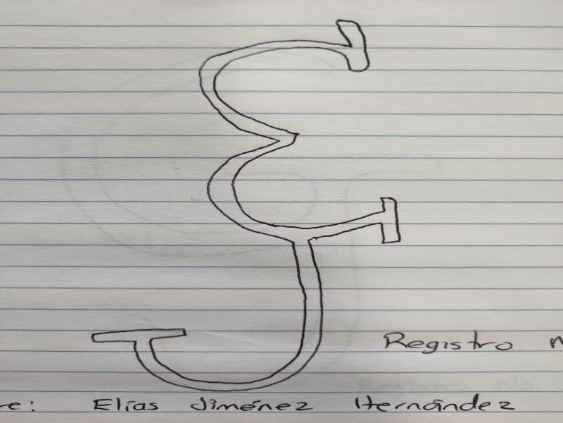 Registro
Elías Jiménez Hernández